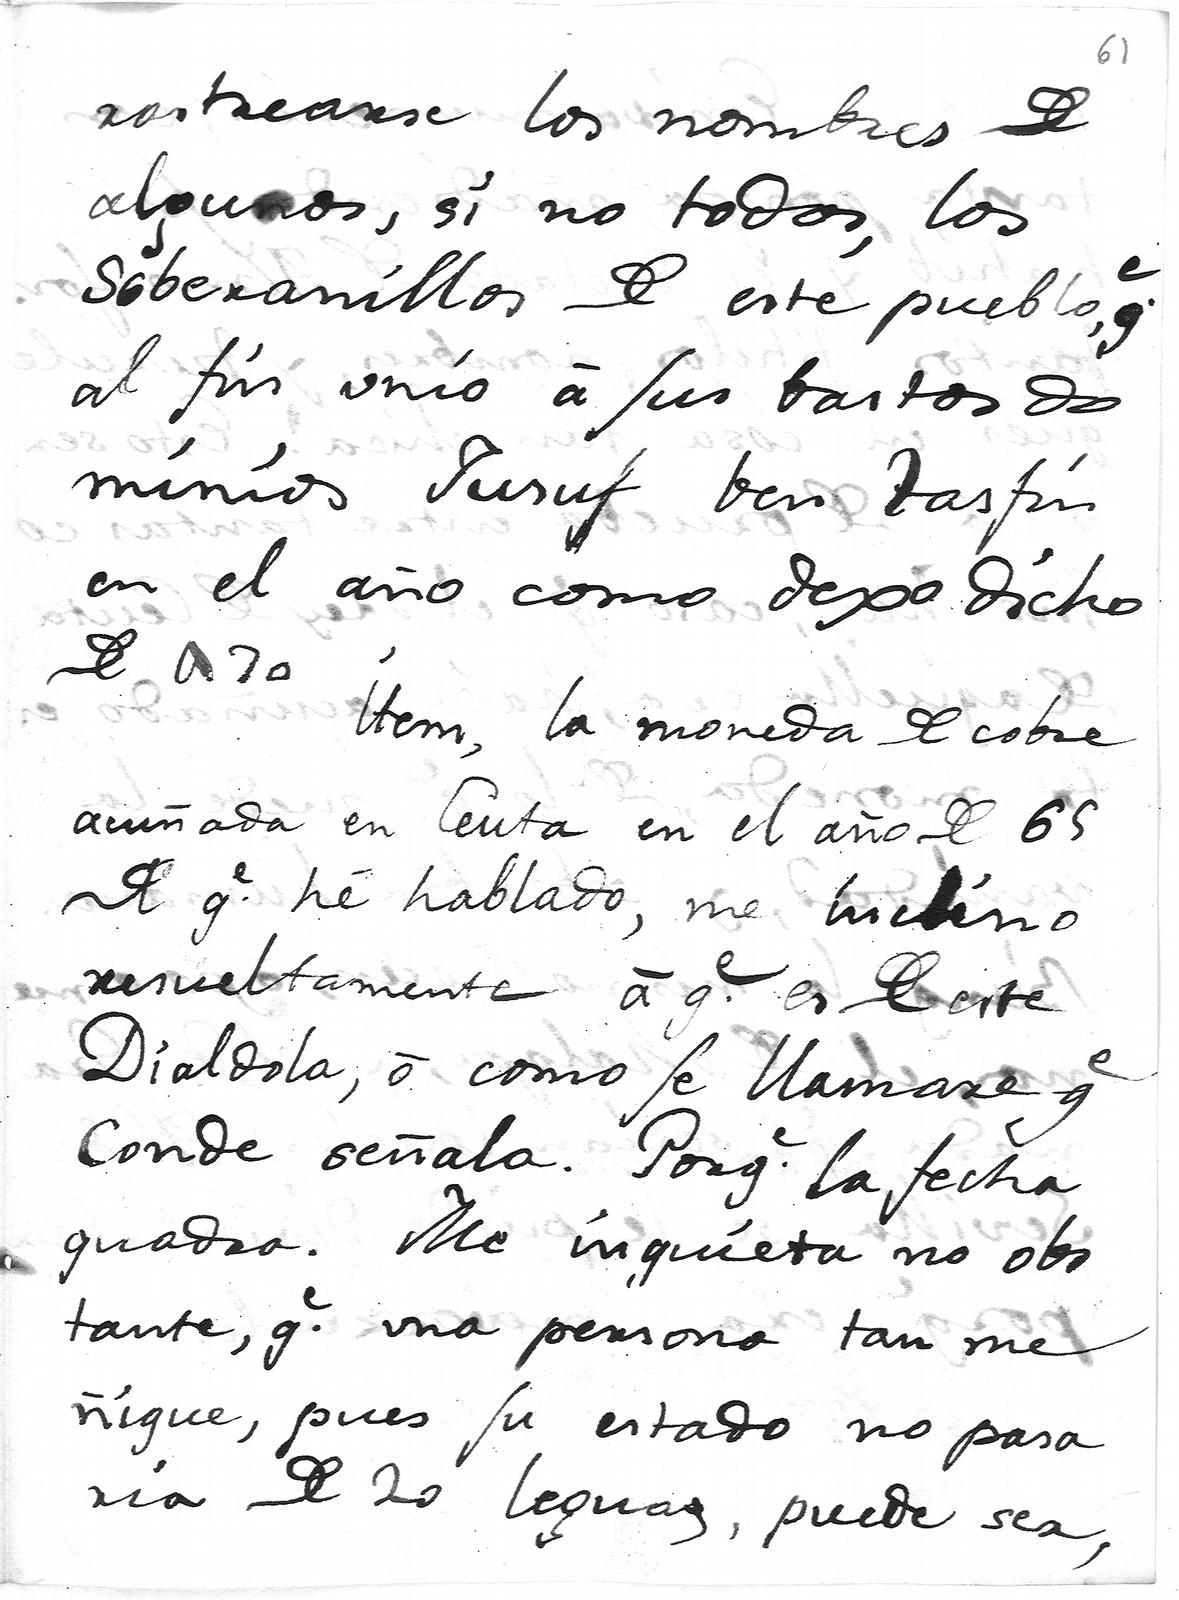 61
rastrearse los nombres de
algunos, si no todos, los
Soberanillos de este pueblo, q.e
al fin vnio ā sus bastos do
minios Jusuf ben Tasfin
en el año como dexo dicho
de
Item, la moneda de cobre
acuñada en Ceuta en el año de 65
de q.e hē hablado, me inclino
resueltamente ā q.e es de este
Dialdola, ō como se llamare q.e
Conde señala. Porq.e la fecha
quadra. Me inquieta no obs
tante, q.e vna persona tan me
ñique, pues su estado no pasa
ria de 20 leguas, puede ser,